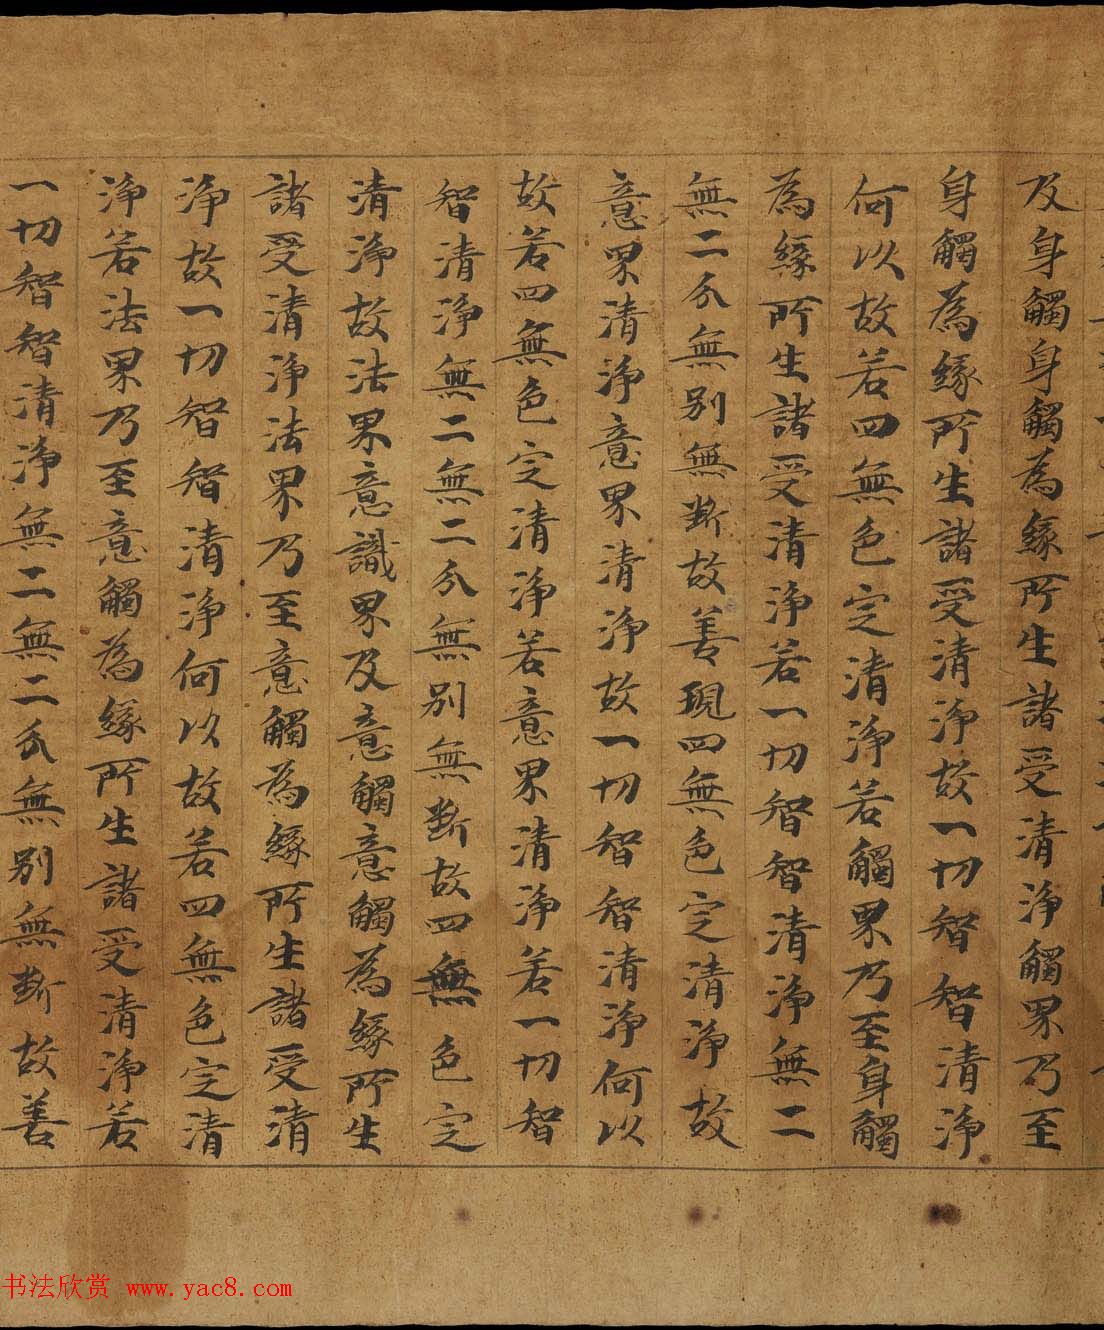 及身觸身觸為緣所生諸受清淨觸界乃至
身觸為緣所生諸受清淨故一切智智清淨
何以故若四無色定清淨若觸界乃至身觸
為緣所生諸受清淨若一切智智清淨無二
無二分無別無斷故善現四無色定清淨故
意界清淨意界清淨故一切智智清淨何以
故若四無色定清淨若意界清淨若一切智
智清淨無二無二分無別無斷故四無色定
清淨故法界意識界及意觸意觸為緣所生
諸受清淨法界乃至意觸為緣所生諸受清
淨故一切智智清淨何以故若四無色定清
淨若法界乃至意觸為緣所生諸受清淨若
一切智智清淨無二無二分無別無斷故善
书法欣赏 www.yac8.com